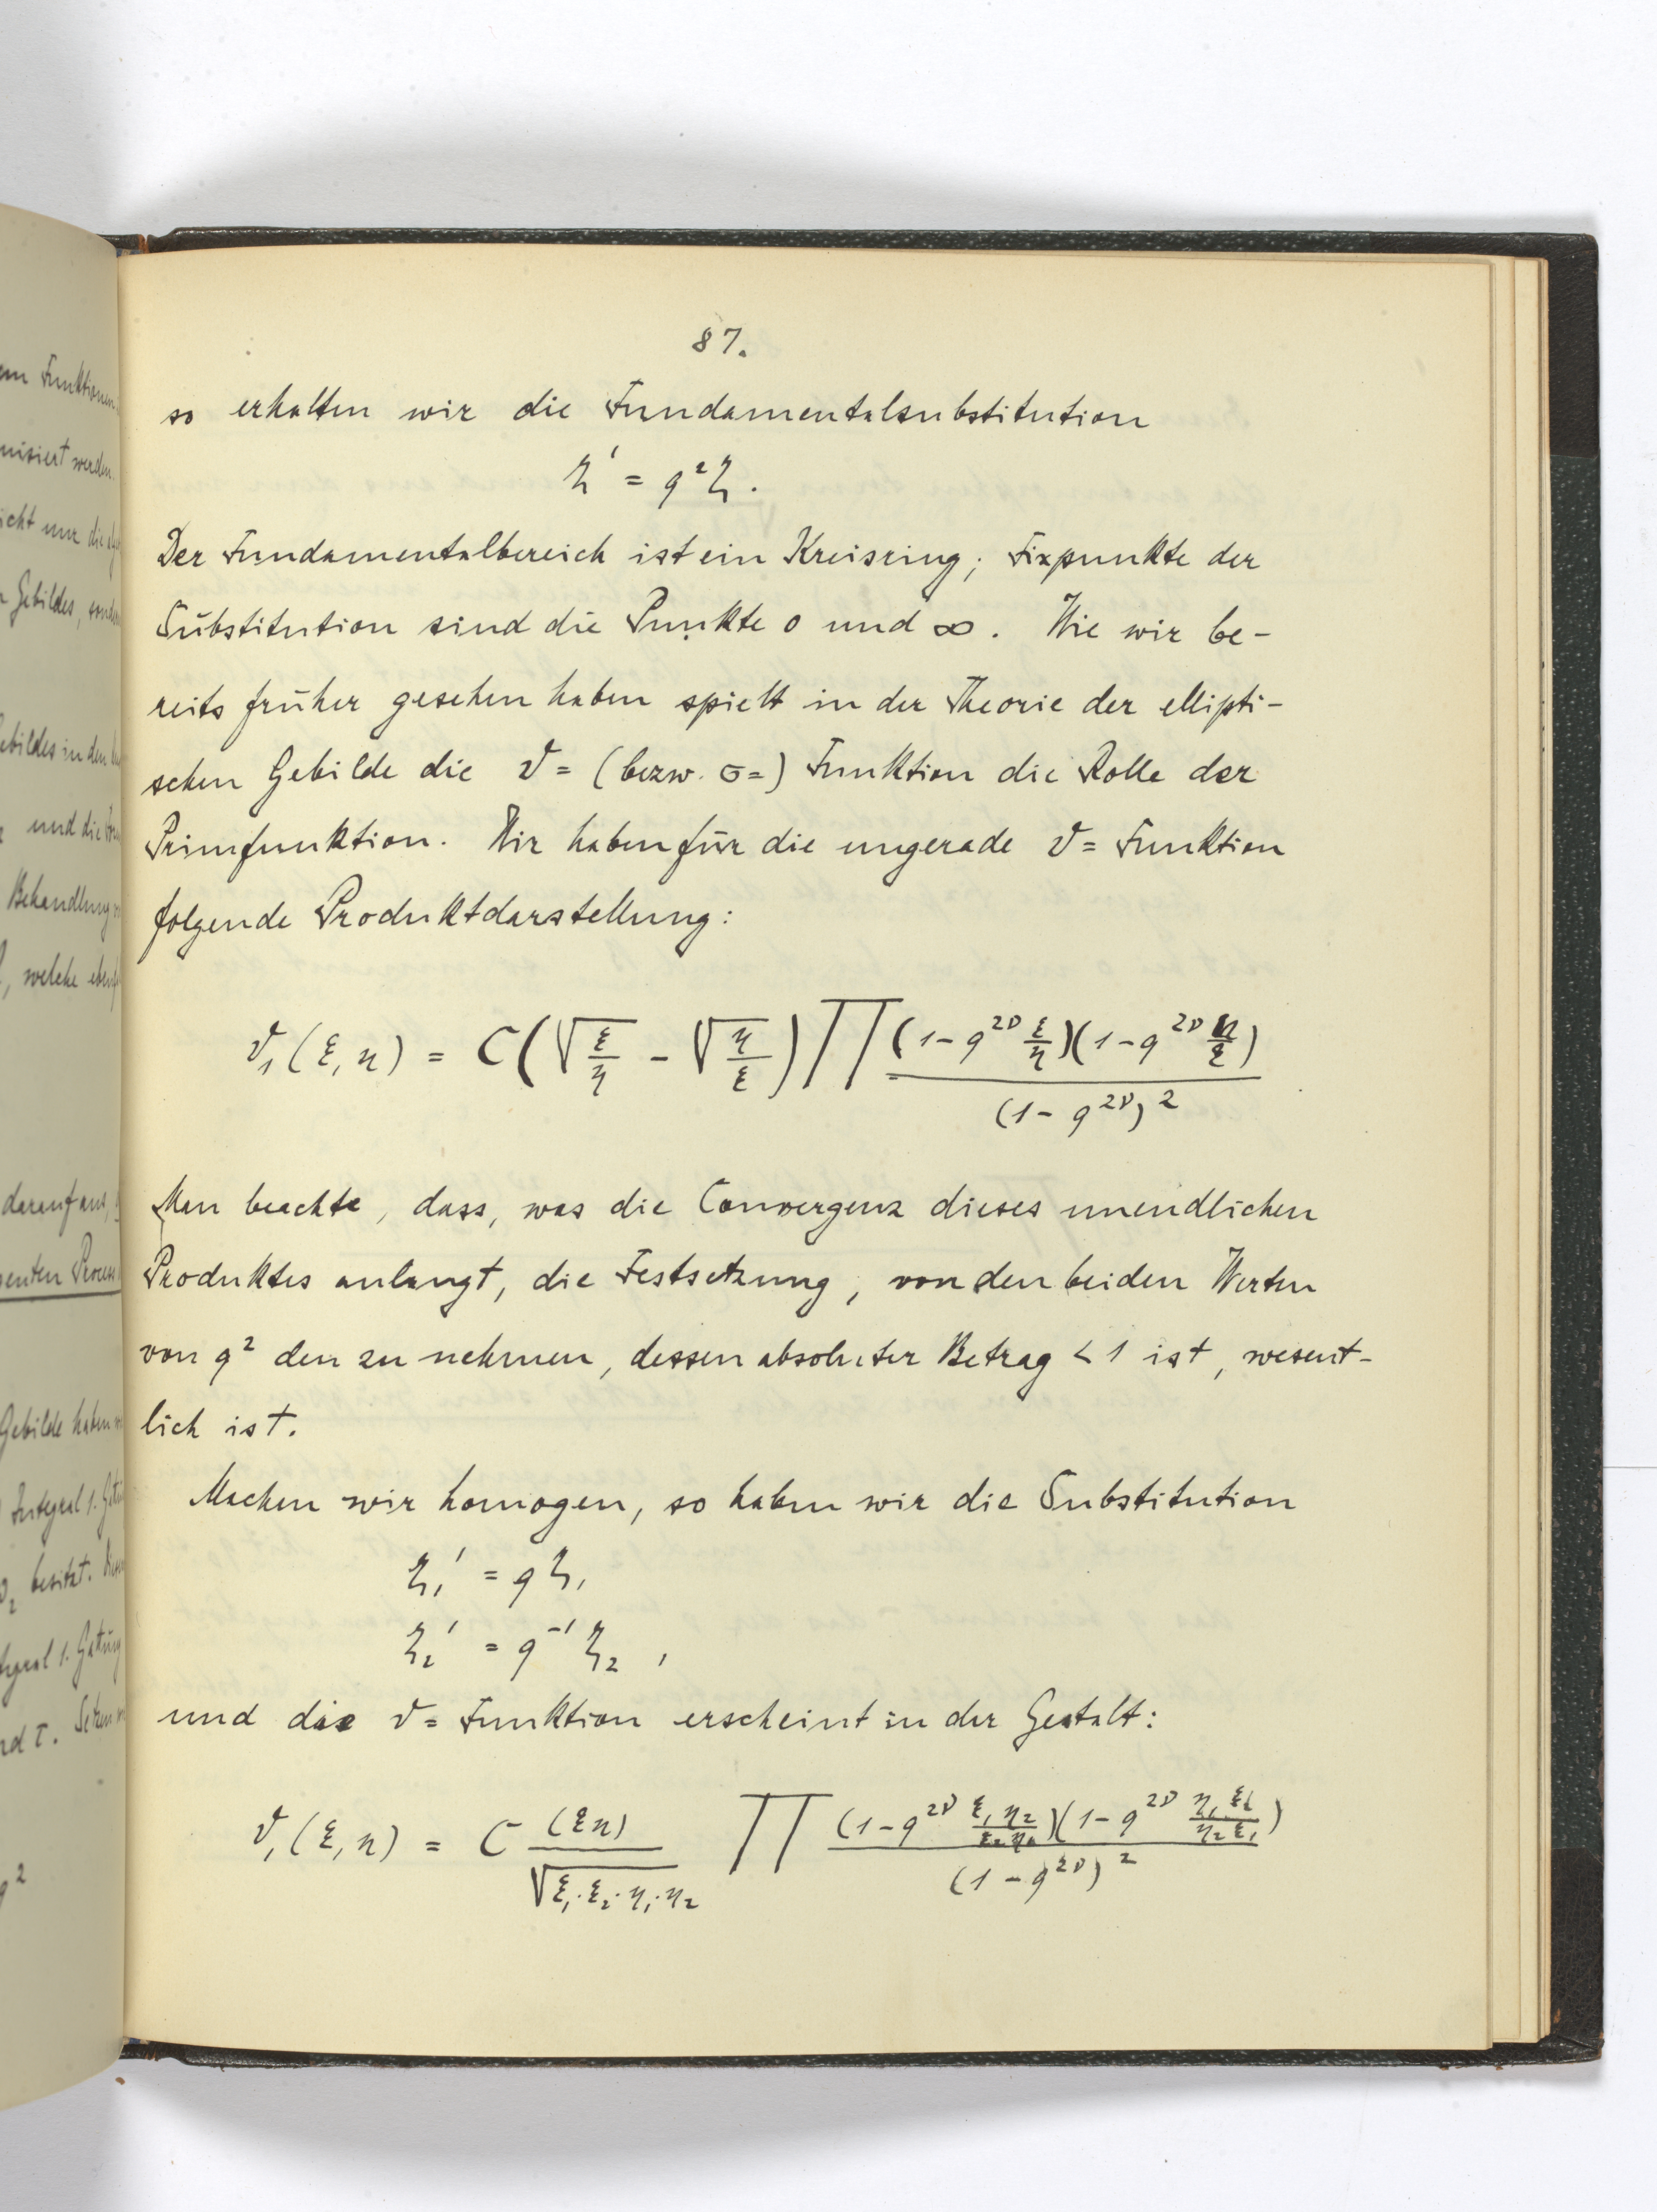 87.
so erhalten wir die Fundamentalsubstitution
ζ' = q²ζ.
Der Fundamentalbereich ist ein Kreisring; Fixpunkte der
Substitution sind die Punkte 0 und ∞. Wie wir be-
reits früher gesehen haben spielt in der Theorie der ellipti-
schen Gebilde die ϑ= (bezw. σ=) Funktion die Rolle der
Primfunktion. Wir haben für die ungerade ϑ= Funktion
folgende Produktdarstellung:
ϑ₁(ξ,η) = C(√(ξ/η) - √(η/ξ)) ∏ (1-q^{2ν} ξ/η)(1-q^{2ν} η/ξ) / (1-q^{2ν})²
Man beachte, dass, was die Convergenz dieses unendlichen
Produktes anlangt, die Festsetzung, von den beiden Werten
von q² den zu nehmen, dessen absoluter Betrag < 1 ist, wesent-
lich ist.
Machen wir homogen, so haben wir die Substitution
ζ₁' = qζ₁
ζ₂' = q⁻¹ζ₂,
und die ϑ= Funktion erscheint in der Gestalt:
ϑ₁(ξ,η) = C (ξη) / √(ξ₁·ξ₂·η₁·η₂) ∏ (1-q^{2ν} ξ₁η₂/ξ₂η₁)(1-q^{2ν} η₁ξ₂/η₂ξ₁) / (1-q^{2ν})²